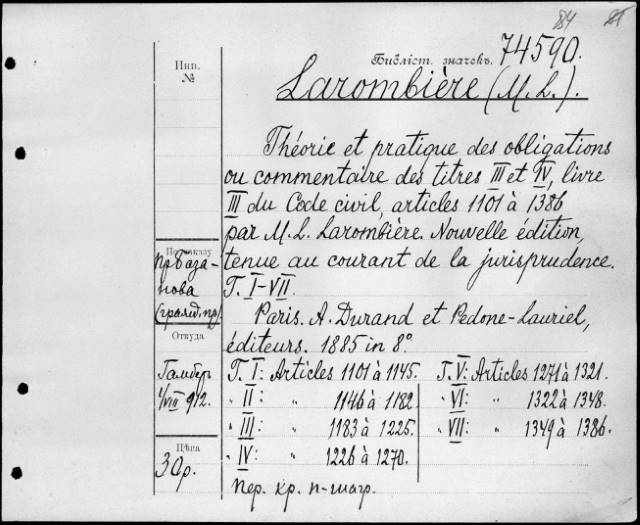 84
Библіст. значекъ. 74590.
Инв.
№
Larombière (M. L.).
Théorie et pratique des obligations
ou commentaire des titres III et IV, livre
III du Code civil, articles 1101 à 1386
par M. L. Larombière. Nouvelle édition,
tenue au courant de la jurisprudence.
T. I-VII.
Paris. A. Durand et Pedone-Lauriel,
éditeurs. 1885 in 8°
По заказу
пр. База-
нова
(гражд. пр)
Откуда
Гамбер
4/VIII 912.
Цѣна
30 р.
T. I: Articles 1101 à 1145.
" II: " 1146 à 1182
" III: " 1183 à 1225.
" IV: " 1226 à 1270.
T. V: Articles 1271 à 1321.
" VI: " 1322 à 1348.
" VII: " 1349 à 1386.
пер. кр. п-шагр.